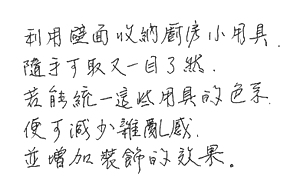 利用壁面收納廚房小用具,
隨手可取又一目了然.
若能統一這些用具的色系.
便可減少雜亂感.
並增加裝飾的效果。